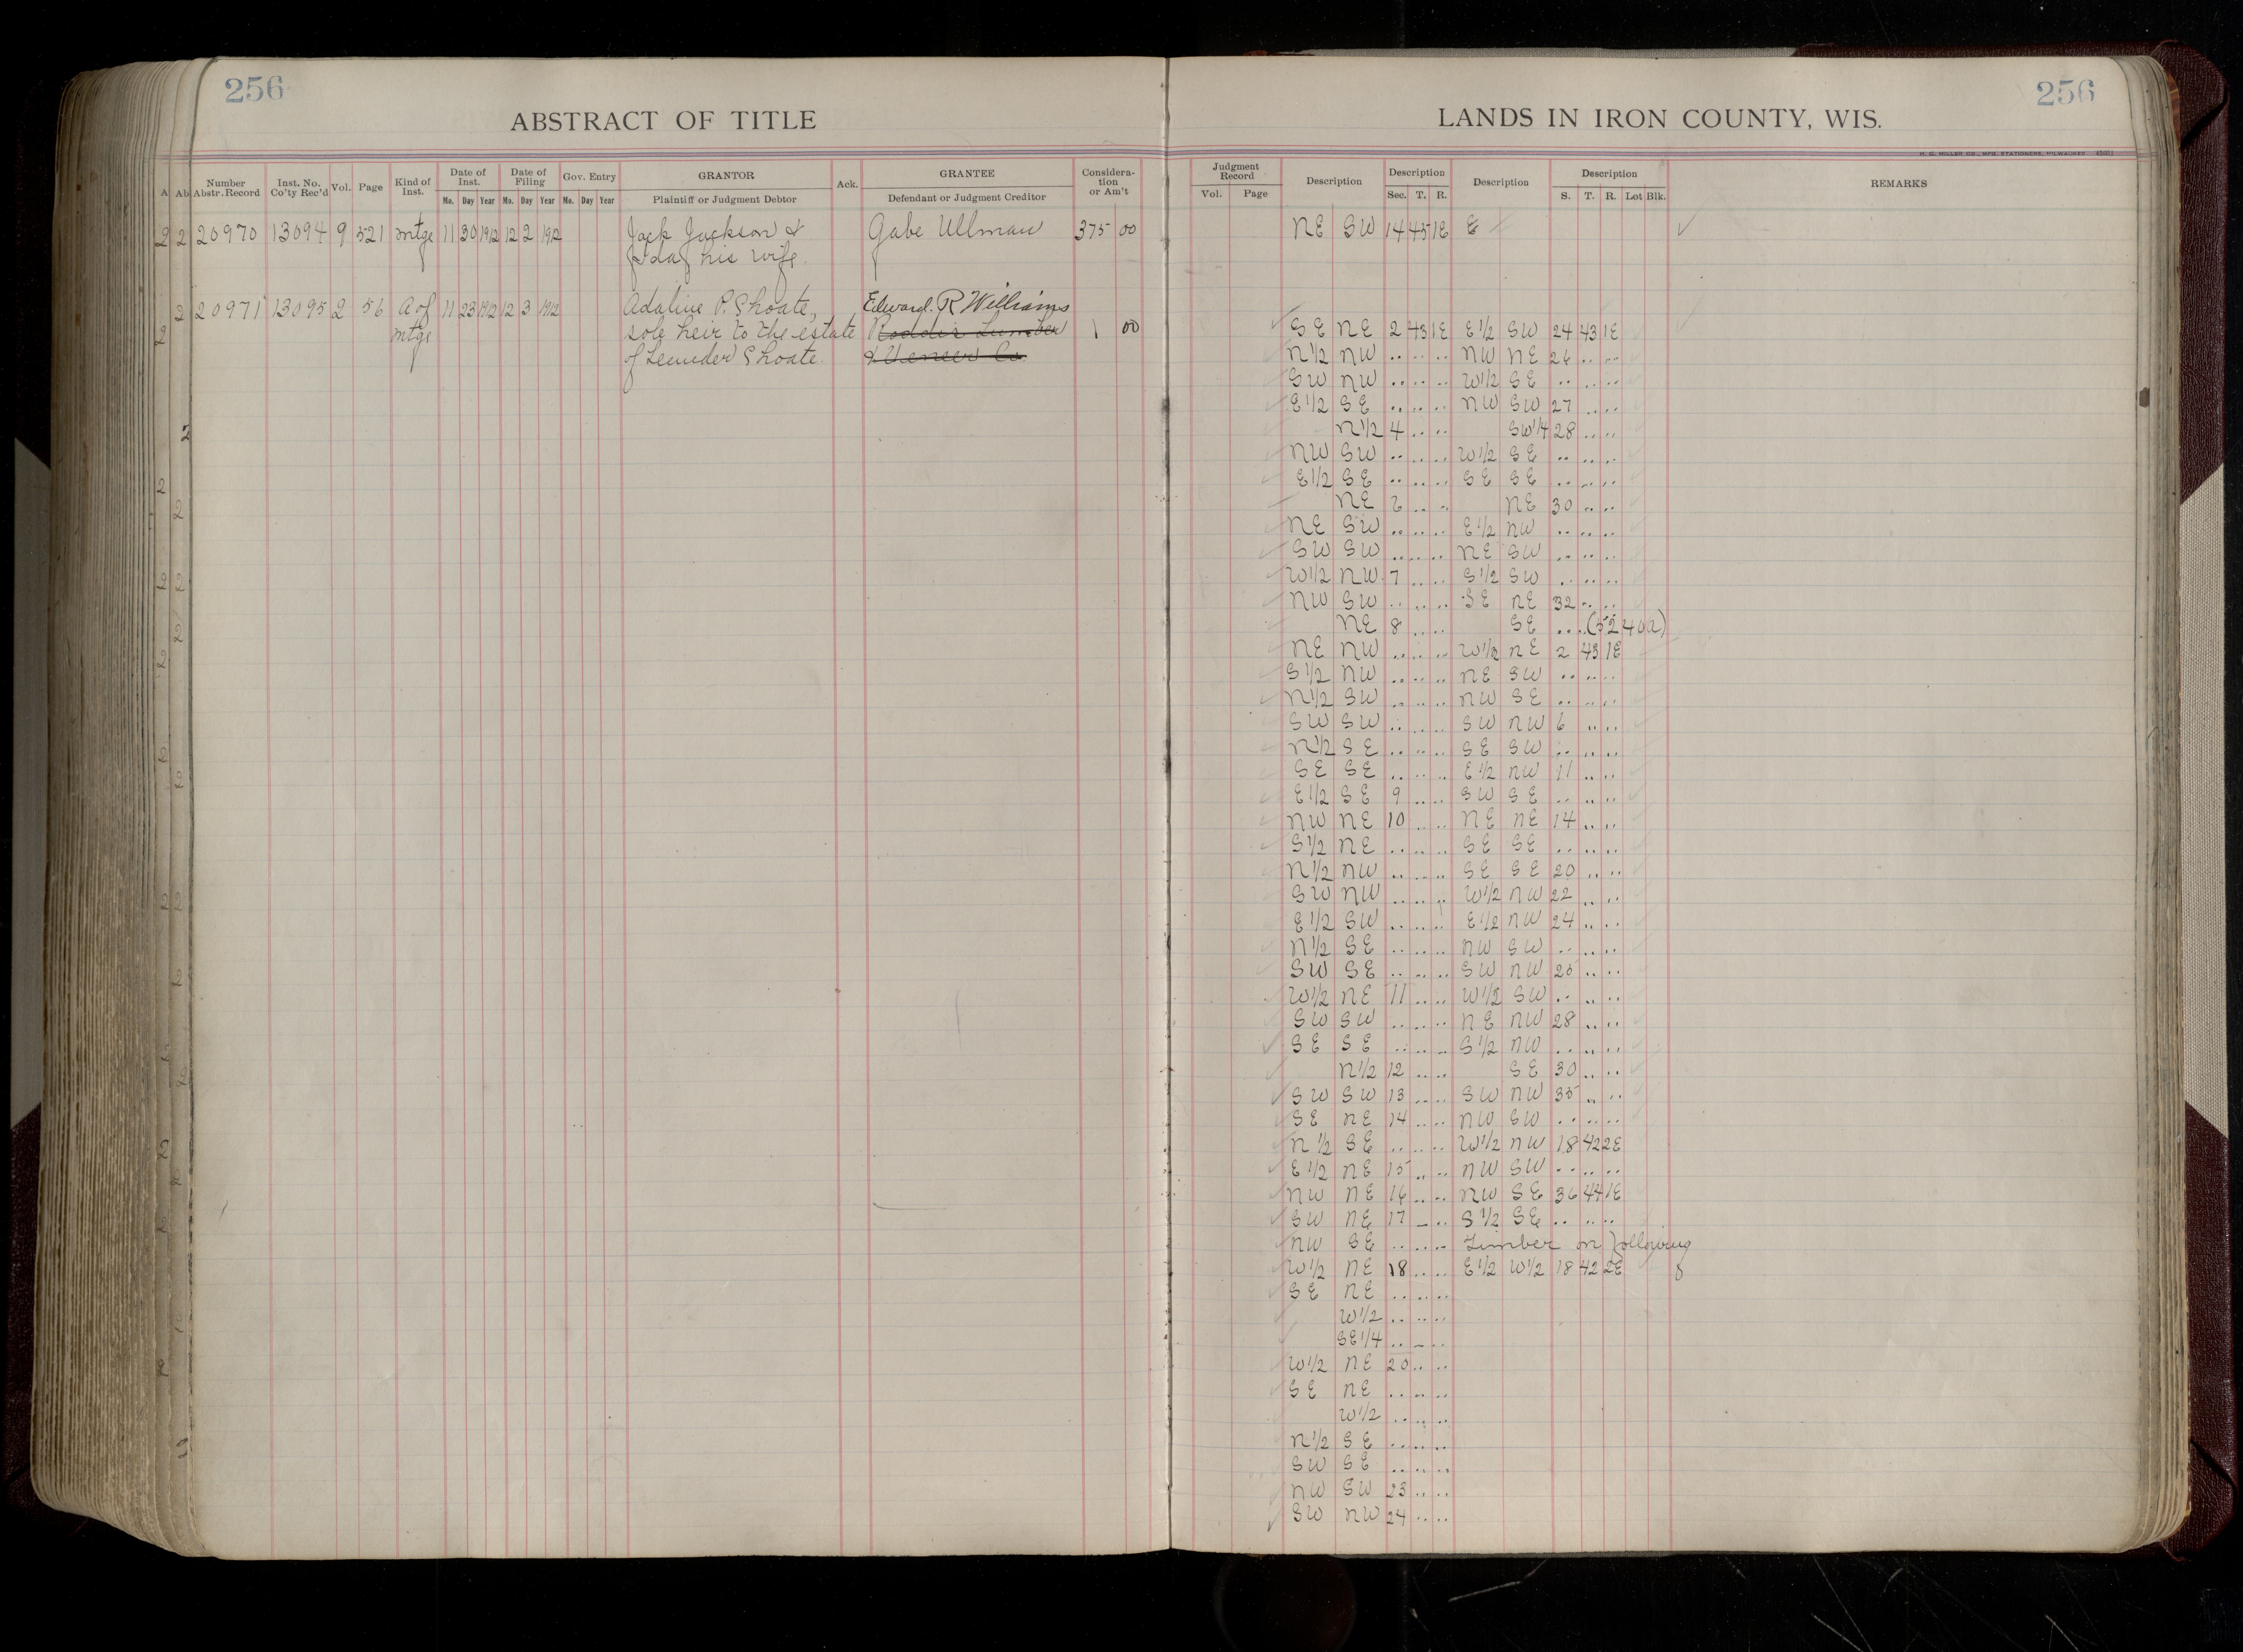 256
256
ABSTRACT OF TITLE
LANDS IN IRON COUNTY, WIS.
H. G. MILLER CO., MFG. STATIONERS, MILWAUKEE
A Ab Number Abstr. Record Inst. No. Co'ty Rec'd Vol. Page Kind of Inst. Date of Inst. Mo. Day Year Date of Filing Mo. Day Year Gov. Entry Mo. Day Year GRANTOR Plaintiff or Judgment Debtor Ack. GRANTEE Defendant or Judgment Creditor Consideration or Am't
Judgment Record Vol. Page Description Description Sec. T. R. Description Description S. T. R. Lot Blk. REMARKS
2 2 20970 13094 9 521 mtge 11 30 1912 12 2 1912 Jack Jackson & Gabe Ullman 375 00 NE SW 14 45 1E E
Ida his wife.
2 20971 13095 2 56 A of 11 23 1912 12 3 1912 Adaline P. Shoate, Edward. R Williams
2 mtge sole heir to the estate Roddis Lumber 1 00 SE NE 2 43 1E E1/2 SW 24 43 1E
of Leander Shoate. & Veneer Co. N1/2 NW .. .. .. NW NE 26 .. ..
SW NW .. .. .. W1/2 SE .. .. ..
E1/2 SE .. .. .. NW SW 27 .. ..
N1/2 4 .. .. SW1/4 28 .. ..
NW SW .. .. .. W1/2 SE .. .. ..
E1/2 SE .. .. .. SE SE .. .. ..
NE 6 .. .. NE 30 .. ..
NE SW .. .. .. E1/2 NW .. .. ..
SW SW .. .. .. NE SW .. .. ..
W1/2 NW 7 .. .. S1/2 SW .. .. ..
NW SW .. .. .. SE NE 32 .. ..
NE 8 .. .. SE .. .. (5240a)
NE NW .. .. .. W1/2 NE 2 43 1E
S1/2 NW .. .. .. NE SW .. .. ..
N1/2 SW .. .. .. NW SE .. .. ..
SW SW .. .. .. SW NW 6 .. ..
N1/2 SE .. .. .. SE SW .. .. ..
SE SE .. .. .. E1/2 NW 11 .. ..
E1/2 SE 9 .. .. SW SE .. .. ..
NW NE 10 .. .. NE NE 14 .. ..
S1/2 NE .. .. .. SE SE .. .. ..
N1/2 NW .. .. .. SE SE 20 .. ..
SW NW .. .. .. W1/2 NW 22 .. ..
E1/2 SW .. .. .. E1/2 NW 24 .. ..
N1/2 SE .. .. .. NW SW .. .. ..
SW SE .. .. .. SW NW 25 .. ..
W1/2 NE 11 .. .. W1/2 SW .. .. ..
SW SW .. .. .. NE NW 28 .. ..
SE SE .. .. .. S1/2 NW .. .. ..
N1/2 12 .. .. SE 30 .. ..
SW SW 13 .. .. SW NW 35 .. ..
SE NE 14 .. .. NW SW .. .. ..
N1/2 SE .. .. .. W1/2 NW 18 42 2E
E1/2 NE 15 .. .. NW SW .. .. ..
NW NE 16 .. .. NW SE 36 44 1E
SW NE 17 .. .. S1/2 SE .. .. ..
NW SE .. .. .. Timber on following
W1/2 NE 18 .. .. E1/2 W1/2 18 42 2E
SE NE .. .. ..
W1/2 .. .. ..
SE1/4 .. .. ..
W1/2 NE 20 .. ..
SE NE .. .. ..
W1/2 .. .. ..
N1/2 SE .. .. ..
SW SE .. .. ..
NW SW 23 .. ..
SW NW 24 .. ..